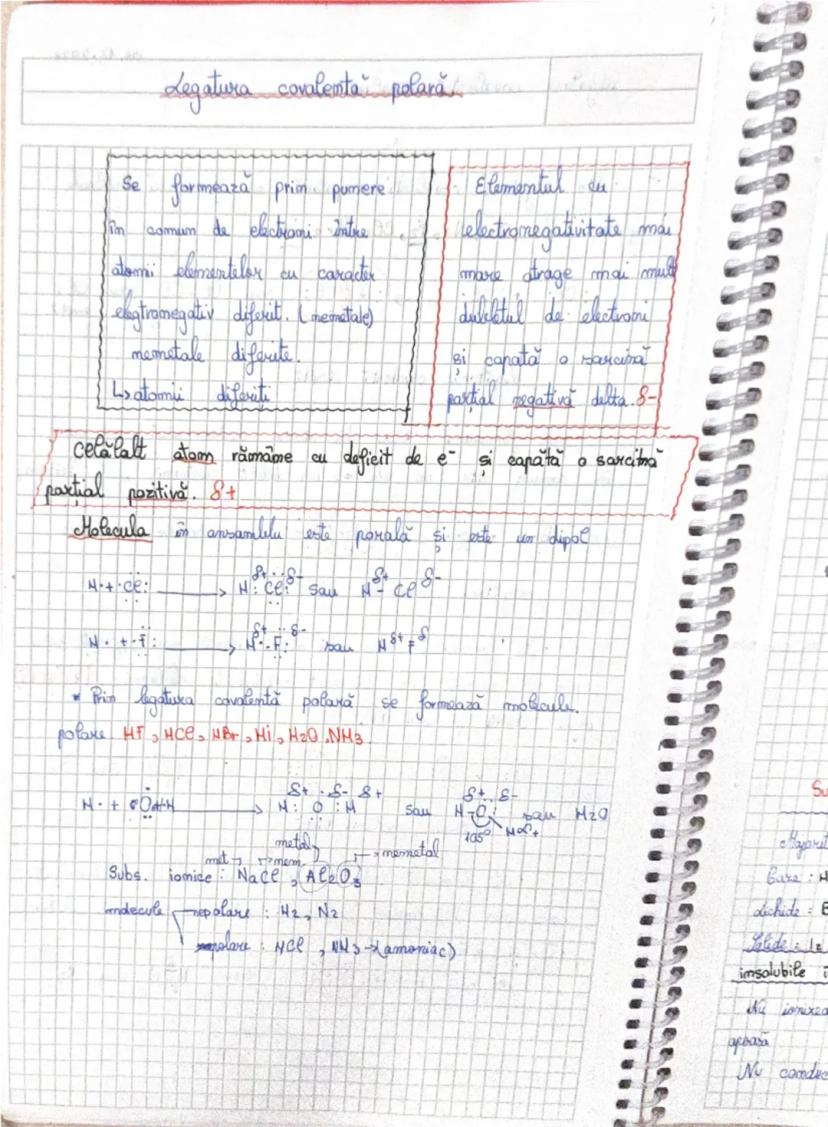 Legatura covalentă polară
Se formează prin punere
în comun de electroni între
atomii elementelor cu caracter
elegtromegativ diferit. (nemetale)
nemetale diferite.
L> atomii diferiți
Elementul cu
electronegativitate mai
mare atrage mai mult
dubletul de electroni
și capată o sarcină
parțial negativă delta. δ-
Celălalt atom rămâne cu deficit de e⁻ și capătă o sarcină
parțial pozitivă. δ+
Molecula în ansamblu este porală și este un dipol
H· + ·Cl: → H : Cl: sau H - Cl
δ+ δ- δ+ δ-
H· + ·F: → H··F: sau H δ+ F δ
δ+ δ-
* Prin legatura covalentă polară se formează molecule.
polare HF, HCl, HBr, Hi, H2O, NH3.
δ+ δ- δ+ δ+ δ-
H· + O +H → H: O :H sau H-O: sau H2O
105° H δ+
metal → nemetal
met. nem.
Subs. ionice: NaCl, Al2O3
molecule nepolare : H2, N2
polare : HCl, NH3 → (amoniac)
Su
Majorit
Gaze : H
Lichide : B
Solide : I2
insolubile î
Nu ionizea
apoasă
Nu conduc